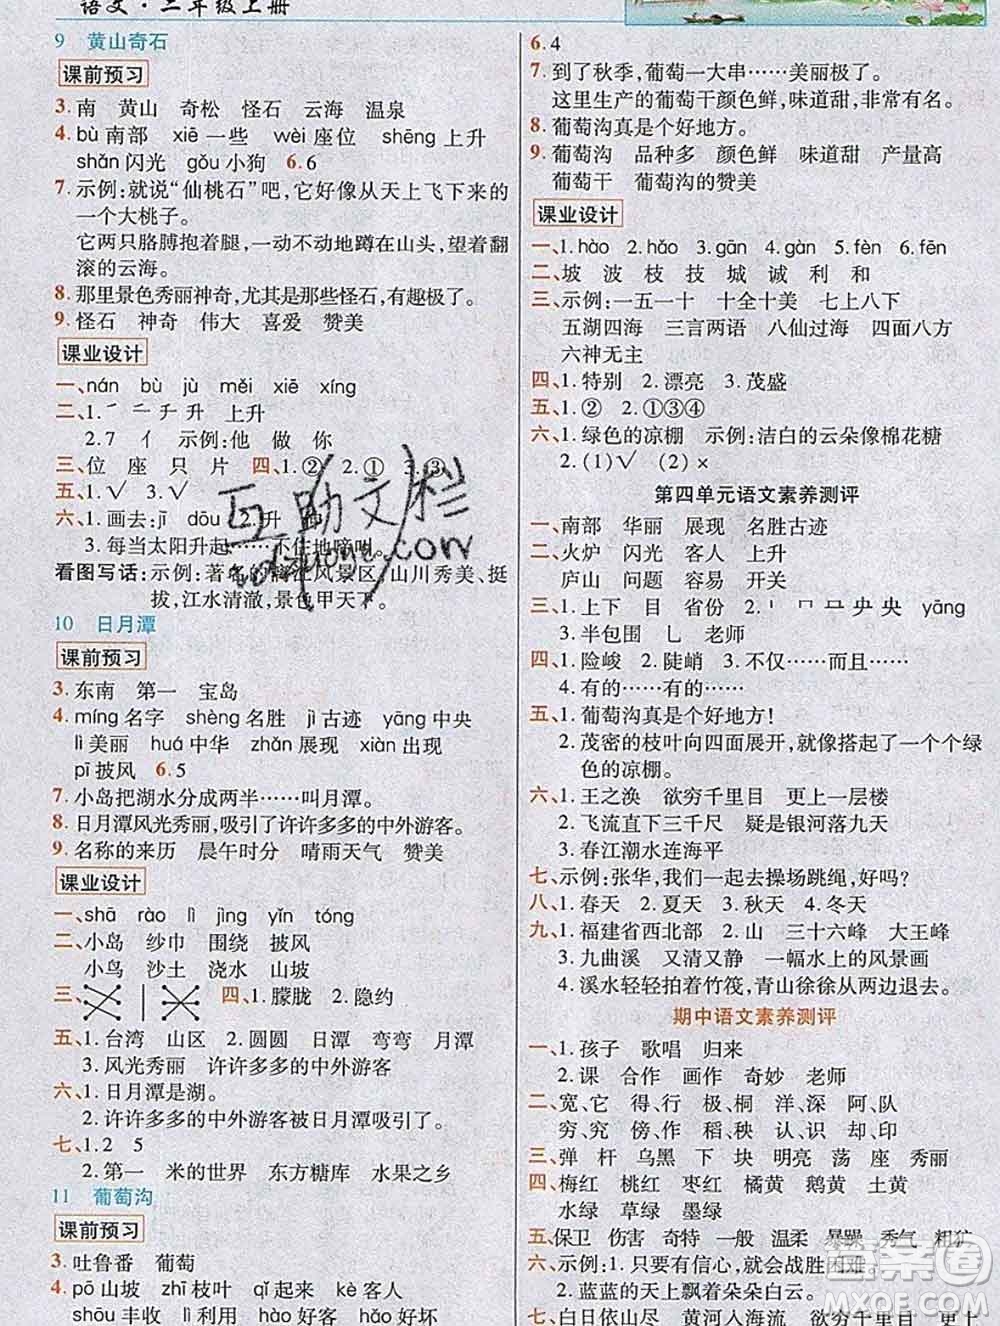 语文·二年级上册
9 黄山奇石
课前预习
3.南 黄山 奇松 怪石 云海 温泉
4.bù南部 xiē一些 wèi座位 shēng上升
shǎn闪光 gǒu小狗 6.6
7.示例:就说“仙桃石”吧,它好像从天上飞下来的
一个大桃子。
它两只胳膊抱着腿,一动不动地蹲在山头,望着翻
滚的云海。
8.那里景色秀丽神奇,尤其是那些怪石,有趣极了。
9.怪石 神奇 伟大 喜爱 赞美
课业设计
一、nán bù jù měi xiē xíng
二、1. 升 上升
2.7 亻 示例:他 做 你
三、位 座 只 片 四、1.② 2.① 3.③
五、1.√ 3.√
六、1.画去:jī dōu 2.升
3.每当太阳升起……不住地啼叫。
看图写话:示例:著名的漓江风景区,山川秀美、挺
拔,江水清澈,景色甲天下。
10 日月潭
课前预习
3.东南 第一 宝岛
4.míng名字 shèng名胜 jì古迹 yāng中央
lì美丽 huá中华 zhǎn展现 xiàn出现
pī披风 6.5
7.小岛把湖水分成两半……叫月潭。
8.日月潭风光秀丽,吸引了许许多多的中外游客。
9.名称的来历 晨午时分 晴雨天气 赞美
课业设计
一、shā rào lì jìng yǐn tóng
二、小岛 纱巾 围绕 披风
小鸟 沙土 浇水 山坡
三、 四、1.朦胧 2.隐约
五、1.台湾 山区 2.圆圆 日潭 弯弯 月潭
3.风光秀丽 许许多多的中外游客
六、1.日月潭是湖。
2.许许多多的中外游客被日月潭吸引了。
七、1.2 5
2.第一 米的世界 东方糖库 水果之乡
11 葡萄沟
课前预习
3.吐鲁番 葡萄
4.pō山坡 zhī枝叶 qǐ起来 kè客人
shōu丰收 lì利用 hǎo好客 hǎo好坏
6.4
7.到了秋季,葡萄一大串……美丽极了。
这里生产的葡萄干颜色鲜,味道甜,非常有名。
8.葡萄沟真是个好地方。
9.葡萄沟 品种多 颜色鲜 味道甜 产量高
葡萄干 葡萄沟的赞美
课业设计
一、1.hào 2.hǎo 3.gān 4.gàn 5.fèn 6.fēn
二、坡 波 枝 技 城 诚 利 和
三、示例:一五一十 十全十美 七上八下
五湖四海 三言两语 八仙过海 四面八方
六神无主
四、1.特别 2.漂亮 3.茂盛
五、1.② 2.①③④
六、1.绿色的凉棚 示例:洁白的云朵像棉花糖
2.(1)√ (2)×
第四单元语文素养测评
一、南部 华丽 展现 名胜古迹
二、火炉 闪光 客人 上升
庐山 问题 容易 开关
三、1.上下 目 省份 2. 央 央 yāng
3.半包围 辶 老师
四、1.险峻 2.陡峭 3.不仅……而且……
4.有的……有的……
五、1.葡萄沟真是个好地方!
2.茂密的枝叶向四面展开,就像搭起了一个个绿
色的凉棚。
六、1.王之涣 欲穷千里目 更上一层楼
2.飞流直下三千尺 疑是银河落九天
3.春江潮水连海平
七、示例:张华,我们一起去操场跳绳,好吗?
八、1.春天 2.夏天 3.秋天 4.冬天
九、1.福建省西北部 2.山 三十六峰 大王峰
3.九曲溪 又清又静 一幅水上的风景画
4.溪水轻轻拍着竹筏,青山徐徐向后退去。
期中语文素养测评
一、1.孩子 歌唱 归来
2.课 合作 画作 奇妙 老师
二、宽、它 得、行 极、桐 洋、深 阿、队
穷、究 傍、傍 稻、秧 识、课 却、印
三、弹 杆 乌黑 下 戏 桐油 荡 座 秀丽
四、梅红 桃红 枣红 橘黄 鹅黄 土黄
水绿 草绿 墨绿
五、保卫 伤害 奇特 一般 温柔 暴躁 秀气 粗犷
六、示例:1.只要有信心,就会战胜困难。
2.蓝蓝的天上飘着朵朵白云。
七、白日依山尽 黄河入海流 欲穷千里目 更上
互助文栏
答案圈
MXQE.COM